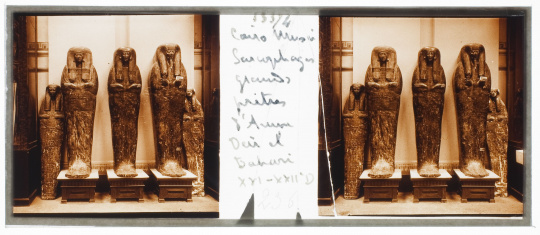 Cairo Musée
Sarcophages
grands
prêtres
d'Amon
Deir el
Bahari
XXI-XXIIe D